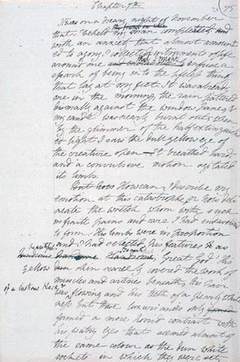 Chapter 7th
75
It was on a dreary night of November
that I beheld my man completed; and
with an anxiety that almost amounted
to agony, I collected instruments of life
around me that I might infuse a
spark of being into the lifeless thing
that lay at my feet. It was already
one in the morning, the rain pattered
dismally against the window panes, &
my candle was nearly burnt out, when
by the glimmer of the half extinguish
ed light I saw the dull yellow eye of
the creature open. It breathed hard,
and a convulsive motion agitated
its limbs.
But how How can I describe my
emotion at this catastrophe; or how deli
neate the wretch whom with such
infinite pains and care I had endeavoured
to form. His limbs were in proportion
and I had selected his features as
beautiful
handsome Great God! His
yellow skin scarcely covered the work of
muscles and arteries beneath; his hair
of a lustrous black &
was flowing and his teeth of a pearly white
ness but these luxuriancies only
formed a more horrid contrast with
his watry eyes that seemed almost of
the same colour as the dun white
sockets in which they were set,